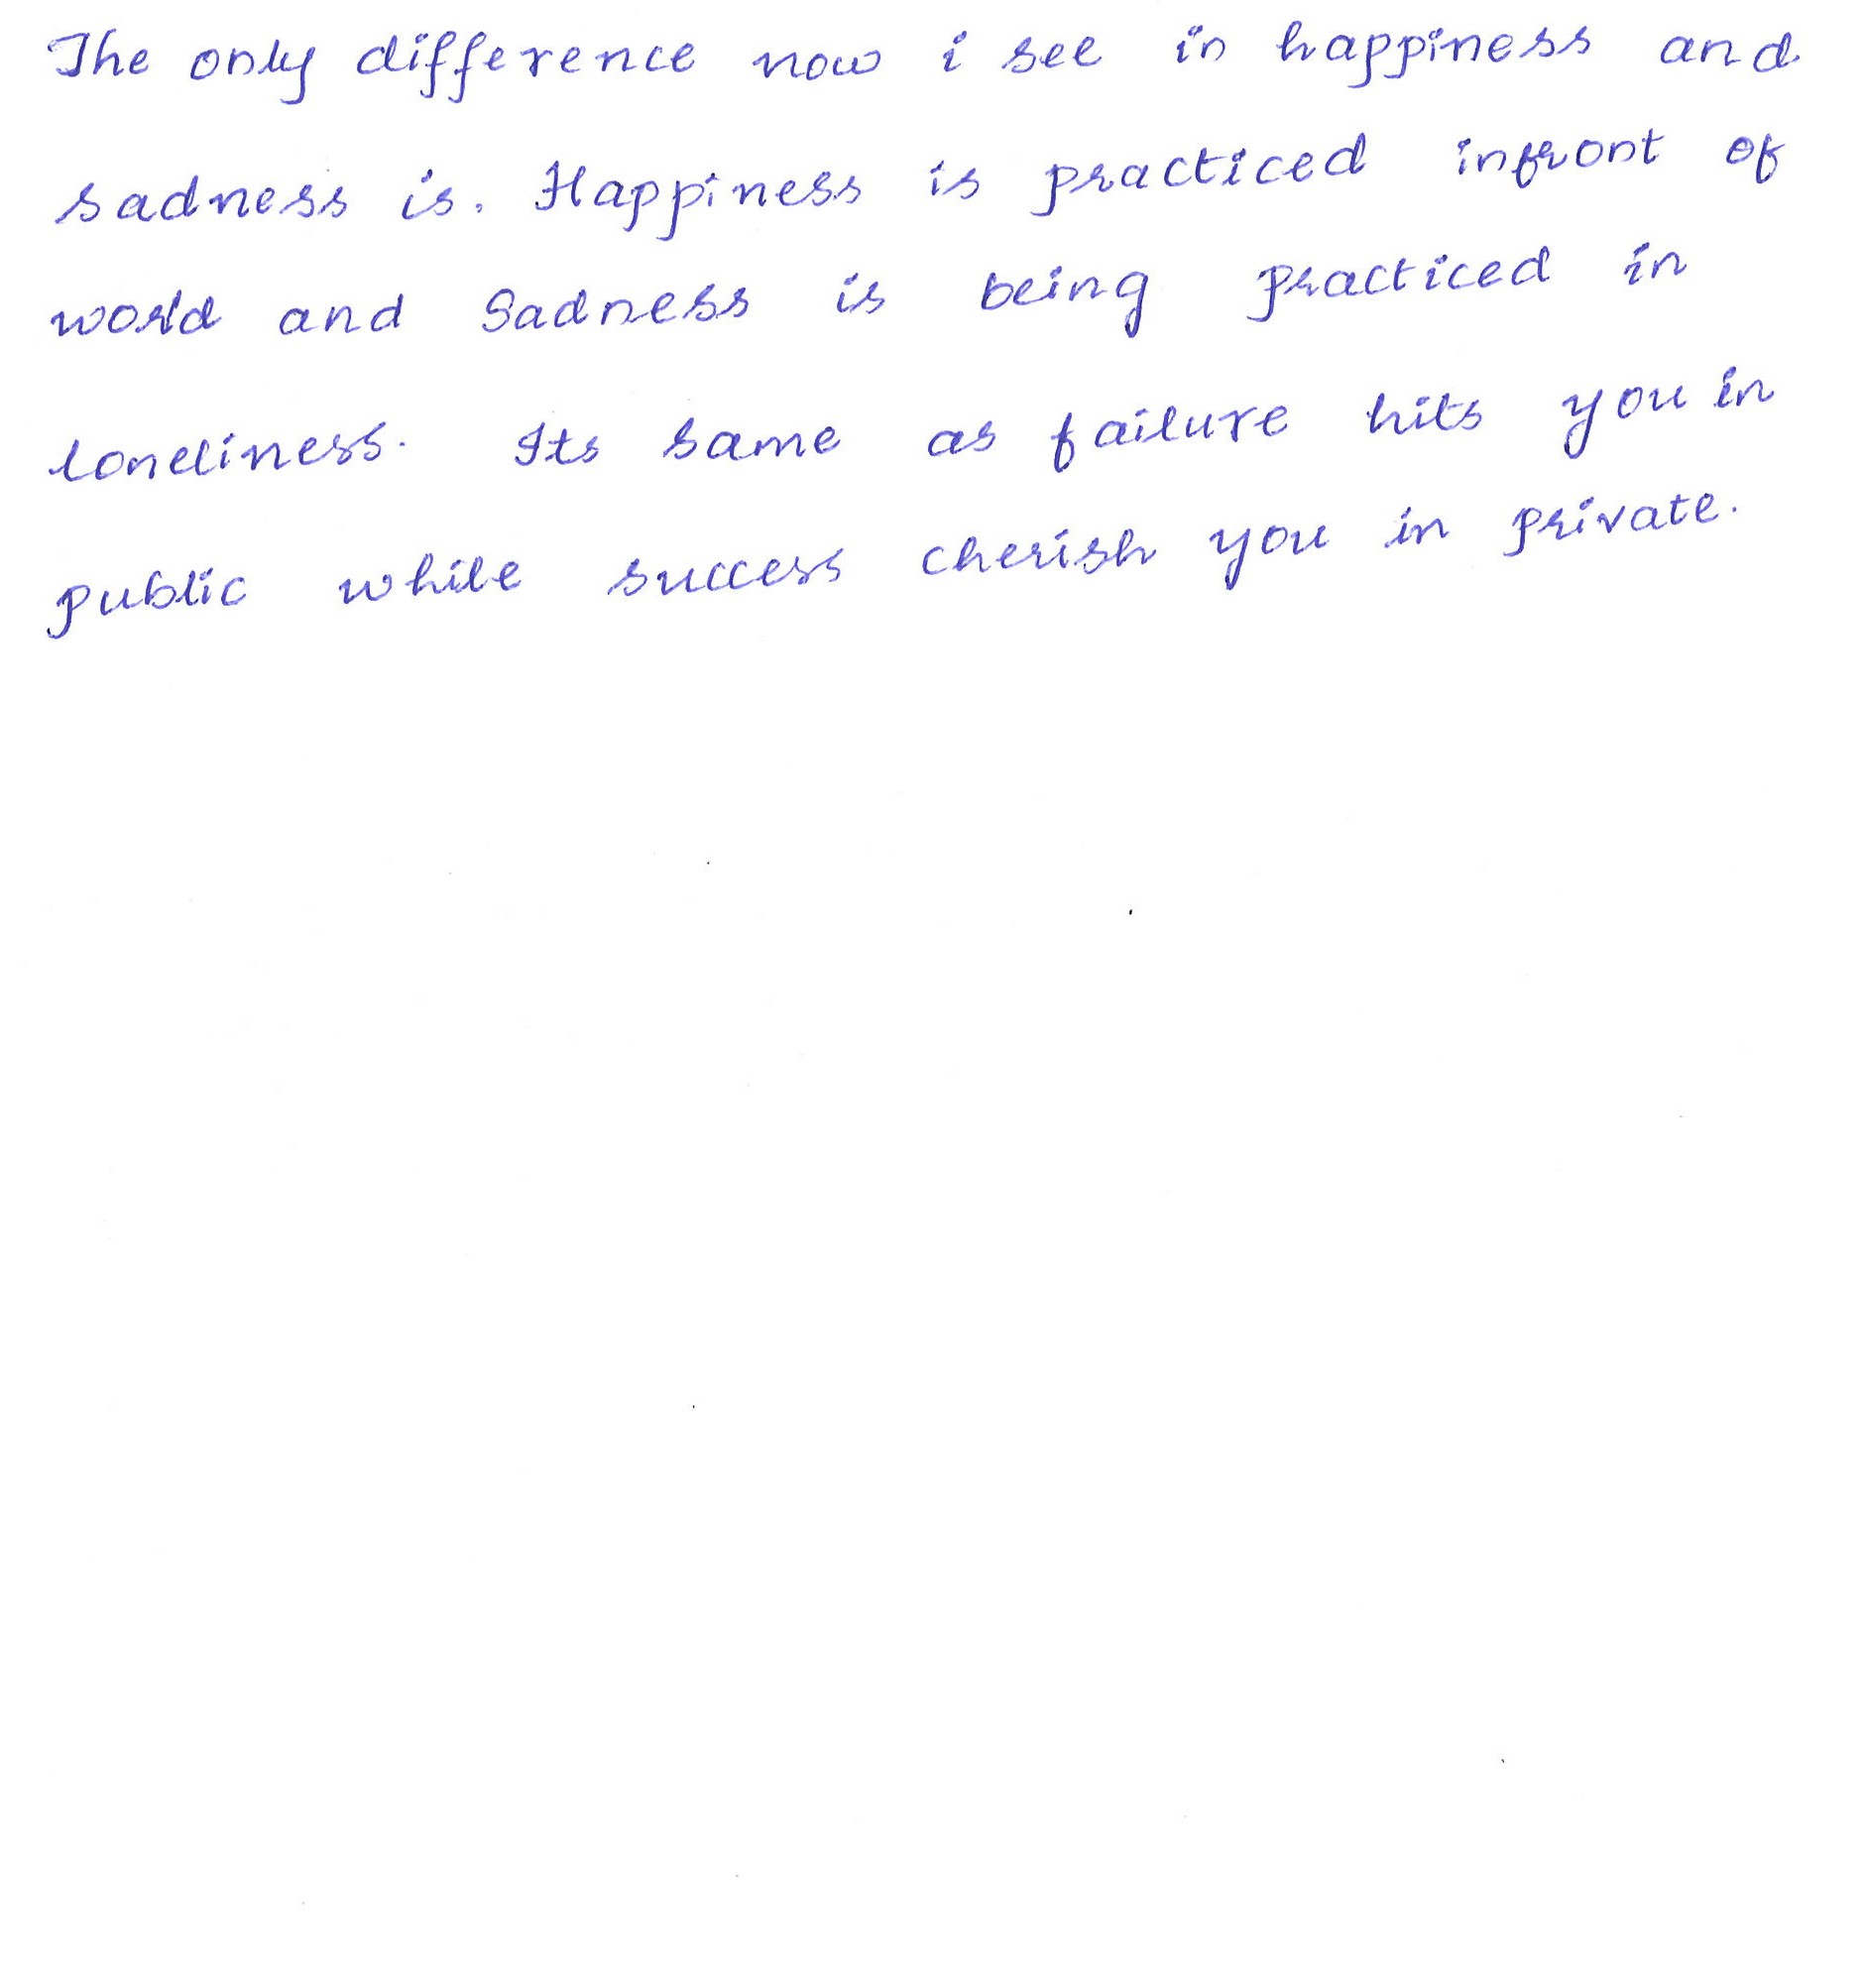 The only difference now i see in happiness and
sadness is. Happiness is practiced infront of
world and Sadness is being practiced in
loneliness. Its same as failure hits you in
public while success cherish you in private.